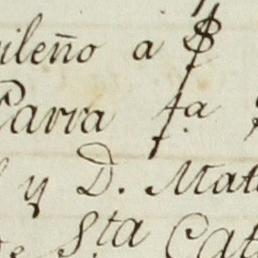 ileño á $
Parra fa
y D. Mat
Sta Cat